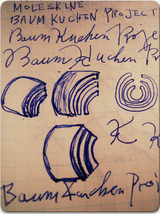 MOLESKINE
BAUM KUCHEN PROJECT
Baum Kuchen Proje
Baum Kuchen P
K
K
Baum Kuchen Proj